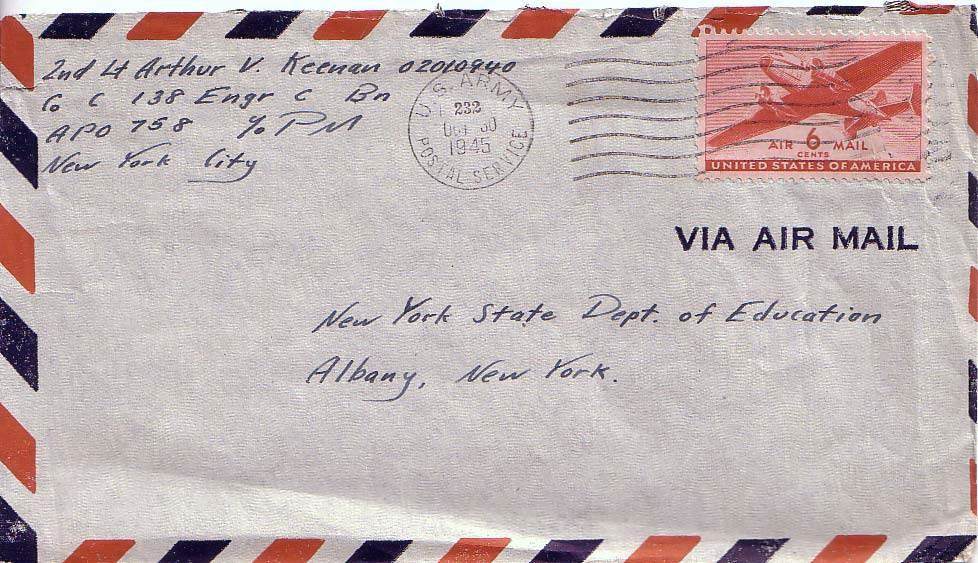 2nd Lt Arthur V. Keenan 02010940
Co C 138 Engr C Bn
APO 758 c/o PM
New York City
U.S. ARMY
232
OCT 30
1945
POSTAL SERVICE
AIR 6 MAIL
CENTS
UNITED STATES OF AMERICA
VIA AIR MAIL
New York State Dept. of Education
Albany, New York.